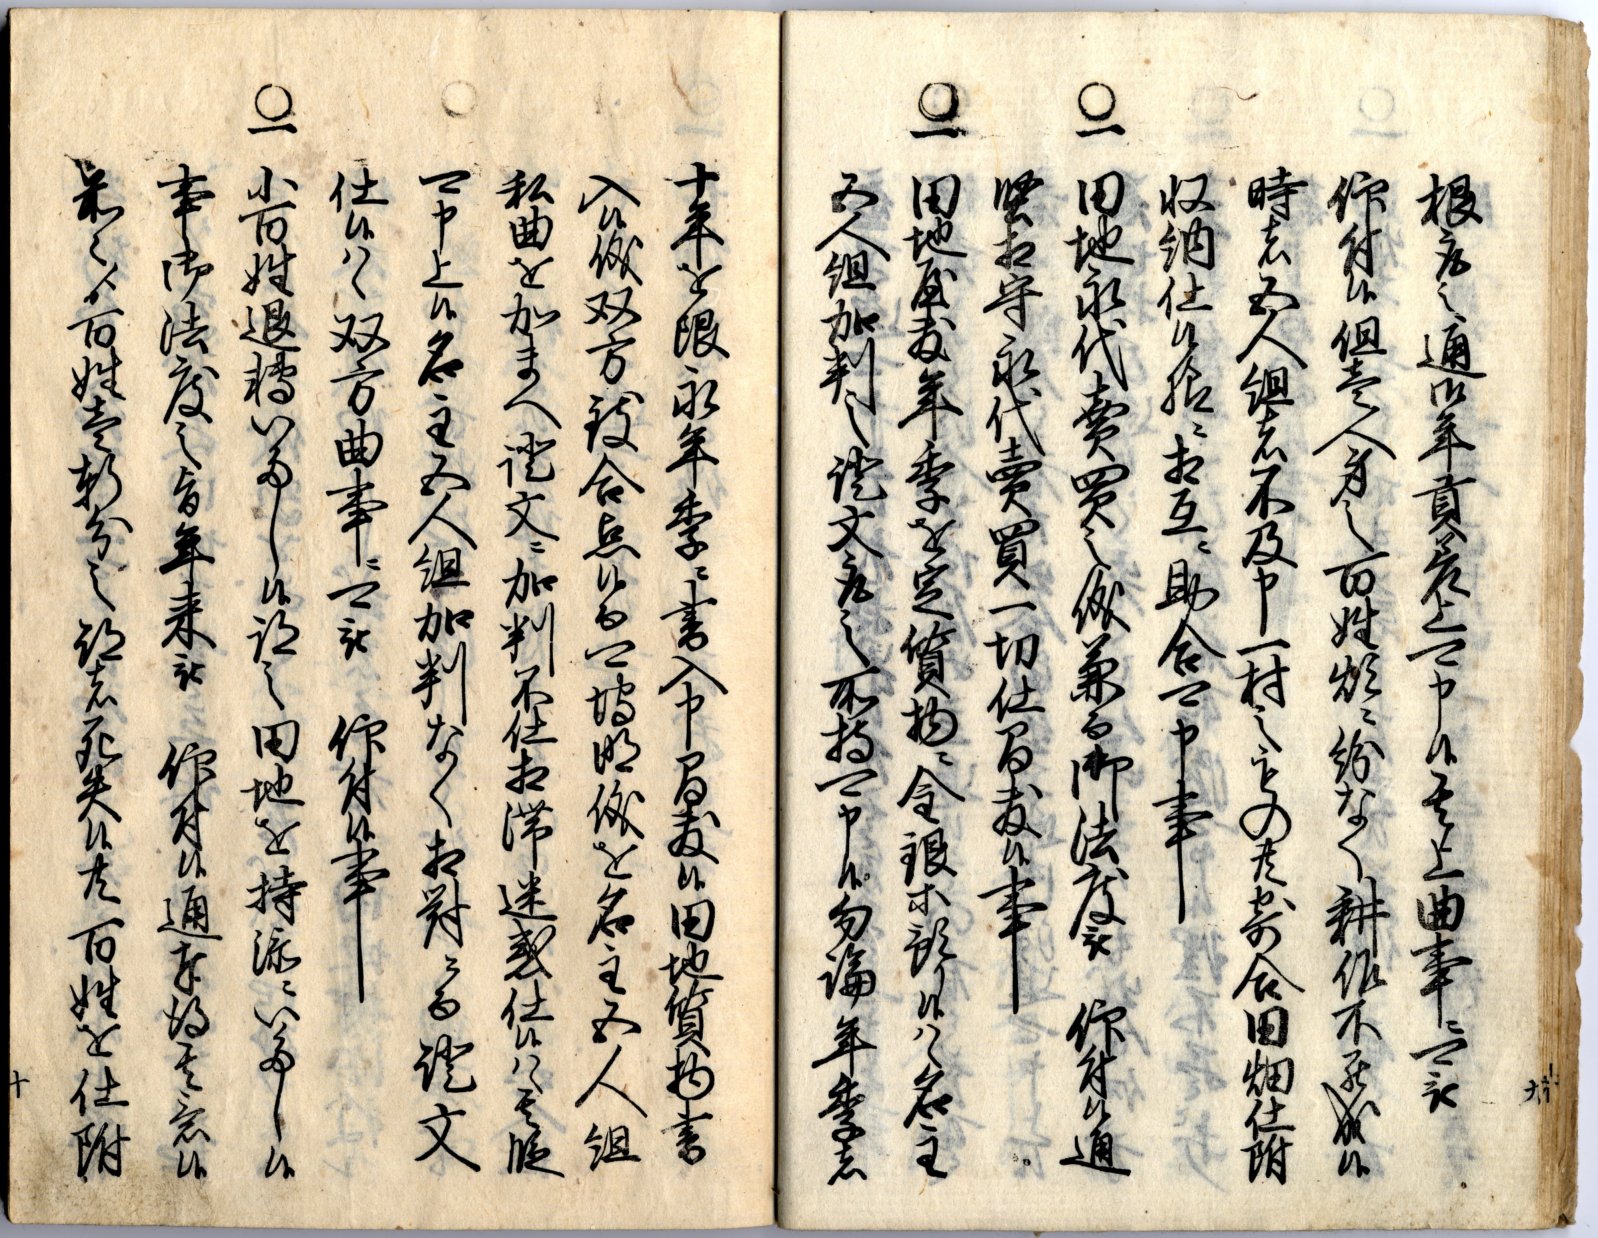 根元之通御年貢差上可申候其上曲事ニ可被
仰付候但壱人身之百姓煩ニ紛なく耕作不罷成候
時者五人組者不及申一村之もの共寄合田畑仕附
収納仕候様ニ相互ニ助合可申事
一田地永代賣買之儀兼而御法度被 仰付候通
堅相守永代賣買一切仕間敷候事
一田地屋敷年季を定質物ニ金銀米預リ候ハヽ名主
五人組加判之證文取之所持可申候勿論年季者
十年を限永年季ニ書入申間敷候田地質物書
入候儀双方致合点候而可埒明儀を名主五人組
私曲を加まへ證文ニ加判不仕相滞迷惑仕候ハヽ其段
可申上候名主五人組加判なく相対ニ而證文
仕候ハヽ双方曲事ニ可被 仰付候事
一小百姓退轉いたし候跡之田地を持添ニいたし候
事御法度之旨年来被 仰付候通奉得其意候
前々ゟ百姓壱軒分之跡者死失候共百姓を仕附
十